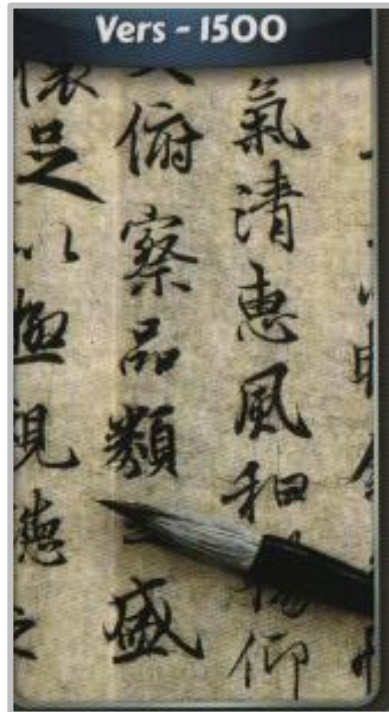 Vers - 1500
氣清惠風和暢仰
俯察品類之盛
懷足以極視聽之